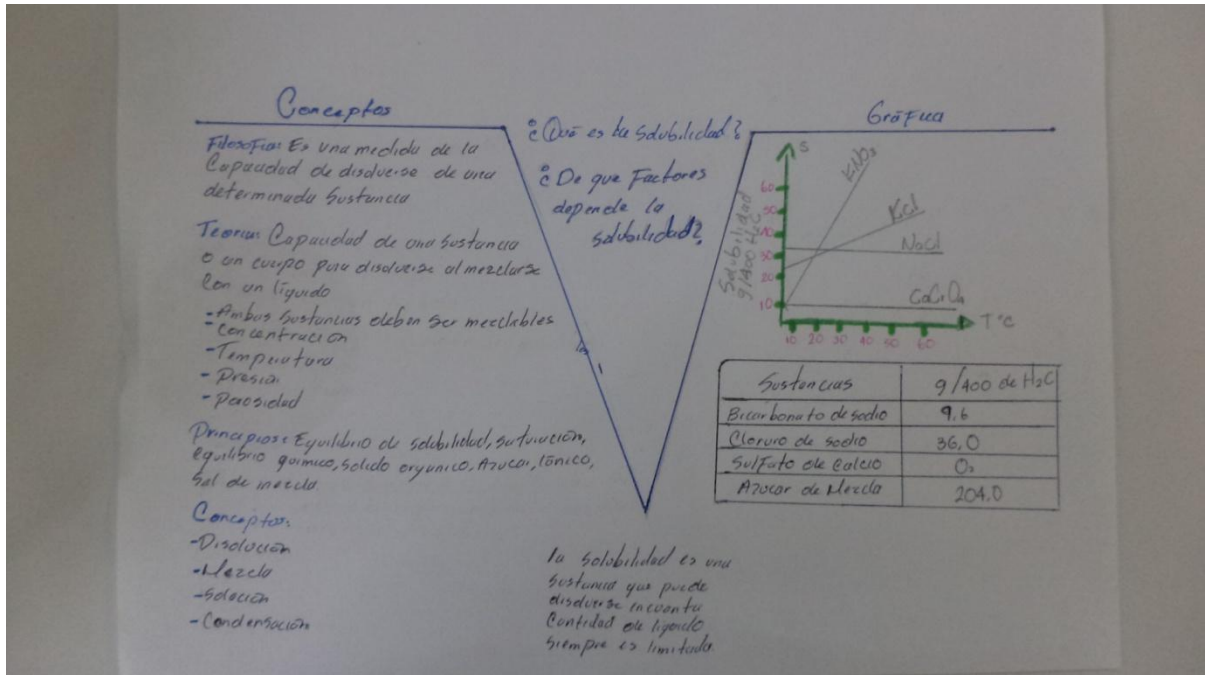 Conceptos
Filosofia: Es una medida de la
Capacidad de disolverse de una
determinada Sustancia
Teoria: Capacidad de una sustancia
o un cuerpo para disolverse al mezclarse
Con un líquido
- Ambas Sustancias deben ser mezclables
- Concentración
- Temperatura
- Presión
- Porosidad
Principios: Equilibrio de solubilidad, saturación,
equilibrio químico, solido organico, Azucar, Iónico,
Sal de mezcla.
Conceptos:
- Disolución
- Mezcla
- Solución
- Condensación
¿Qué es la Solubilidad?
¿De que Factores
depende la
solubilidad?
la solubilidad es una
sustancia que puede
disolverse en cuanta
Cantidad de liquido
siempre es limitada.
Gráfica
S
Solubilidad
g/100 H2O
60
50
40
30
20
10
KNO3
KCl
NaCl
10 20 30 40 50 60
T °C
Sustancias g/100 de H2O
Bicarbonato de sodio 9.6
Cloruro de sodio 36.0
Sulfato de Calcio
Azucar de Mezcla 204.0